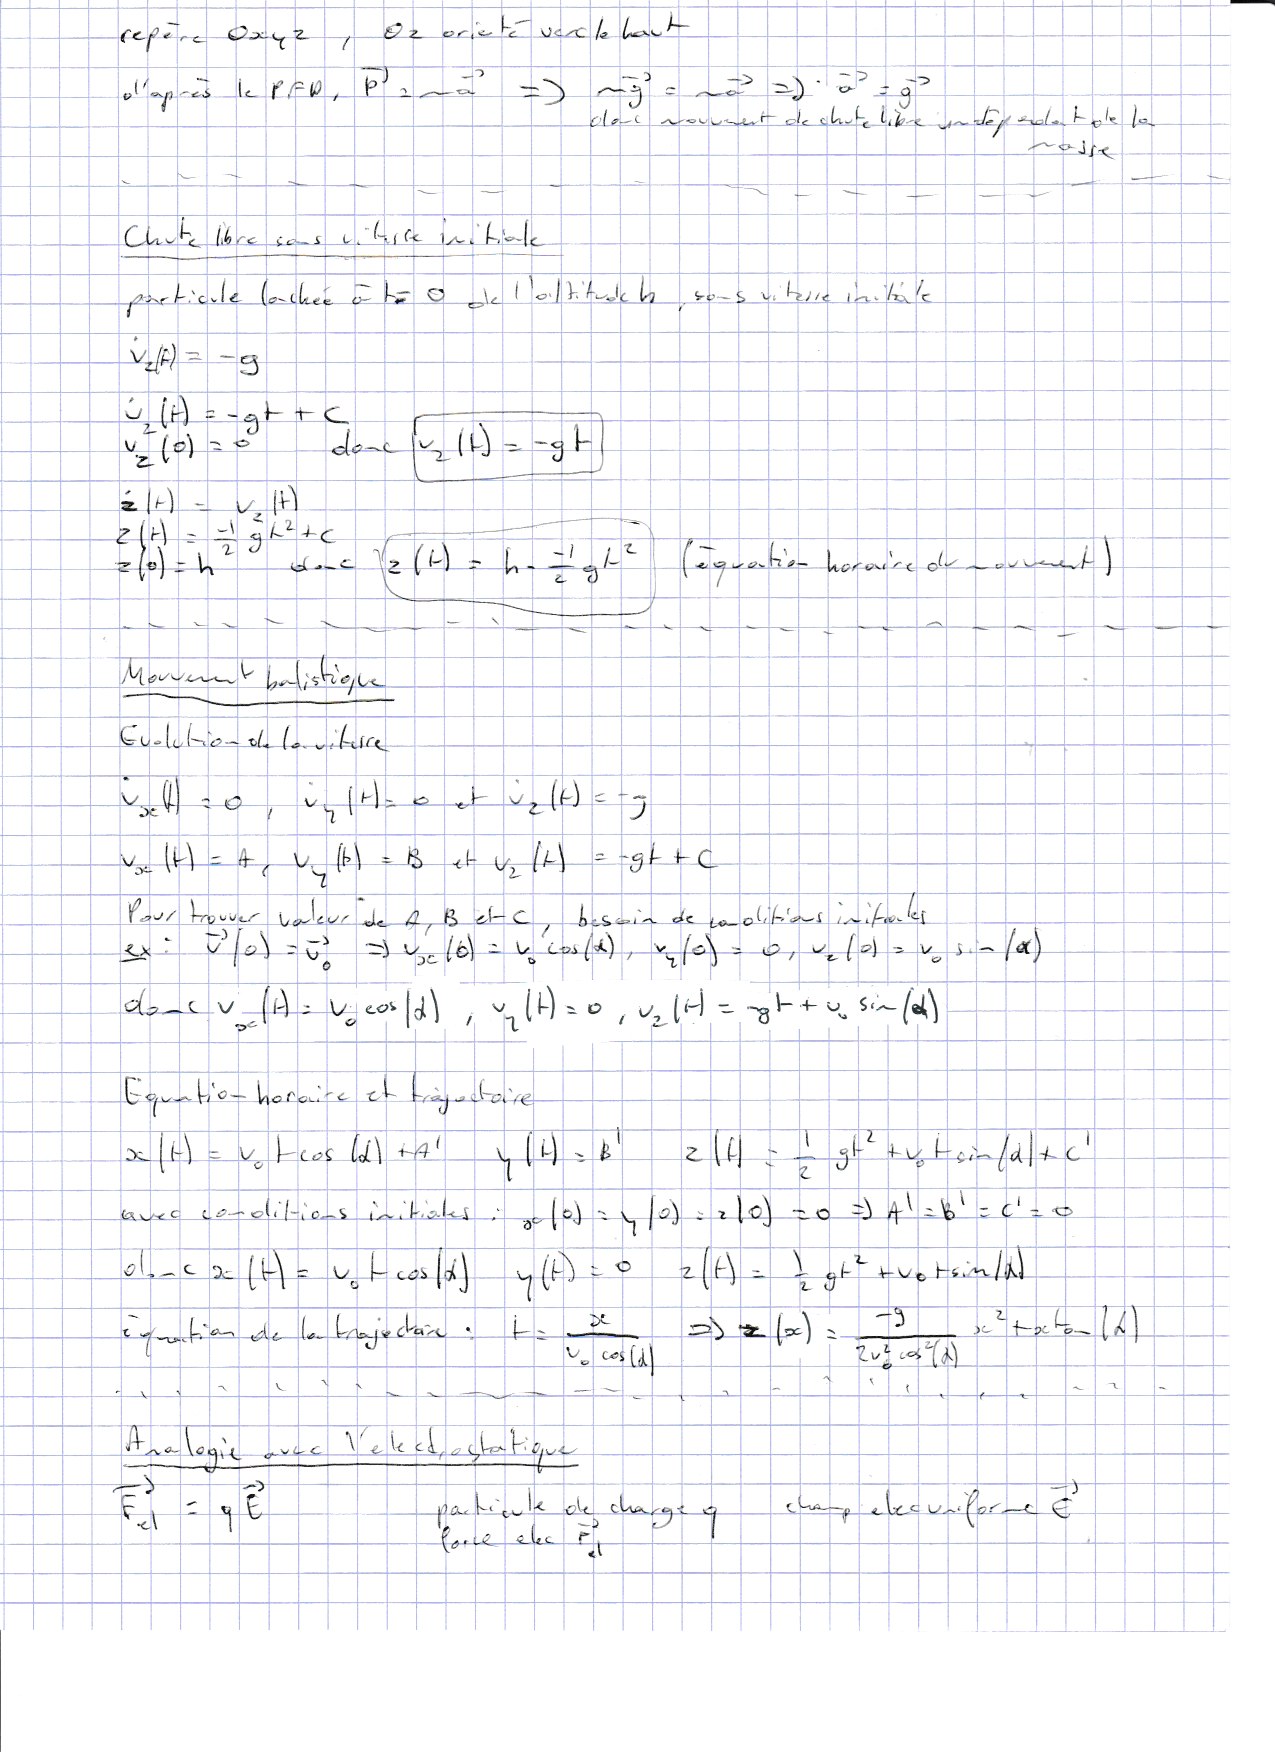 repère Oxyz, Oz orienté vers le haut
d'après le PFD, P⃗ = ma⃗ => mg⃗ = ma⃗ => a⃗ = g⃗
donc mouvement de chute libre indépendant de la
masse
Chute libre sans vitesse initiale
particule lachée à t=0 de l'altitude h, sans vitesse initiale
v̇z(t) = -g
v̇z(t) = -gt + C
vz(0) = 0 donc vz(t) = -gt
ż(t) = vz(t)
z(t) = -1/2 gt² + C
z(0) = h donc z(t) = h - -1/2 gt² (équation horaire du mouvement)
Mouvement balistique
Evolution de la vitesse
v̇x(t) = 0, v̇y(t) = 0 et v̇z(t) = -g
vx(t) = A, vy(t) = B et vz(t) = -gt + C
Pour trouver valeur de A, B et C, besoin de conditions initiales
ex: v⃗(0) = v⃗0 => vx(0) = v0 cos(α), vy(0) = 0, vz(0) = v0 sin(α)
donc vx(t) = v0 cos(α), vy(t) = 0, vz(t) = -gt + v0 sin(α)
Equation horaire et trajectoire
x(t) = v0 t cos(α) + A' y(t) = B' z(t) = 1/2 gt² + v0 t sin(α) + C'
avec conditions initiales : x(0) = y(0) = z(0) = 0 => A' = B' = C' = 0
donc x(t) = v0 t cos(α) y(t) = 0 z(t) = 1/2 gt² + v0 t sin(α)
équation de la trajectoire : t = x/(v0 cos(α)) => z(x) = -g/(2v0² cos²(α)) x² + x tan(α)
Analogie avec l'electrostatique
F⃗el = qE⃗ particule de charge q champ elec uniforme E⃗
force elec F⃗el